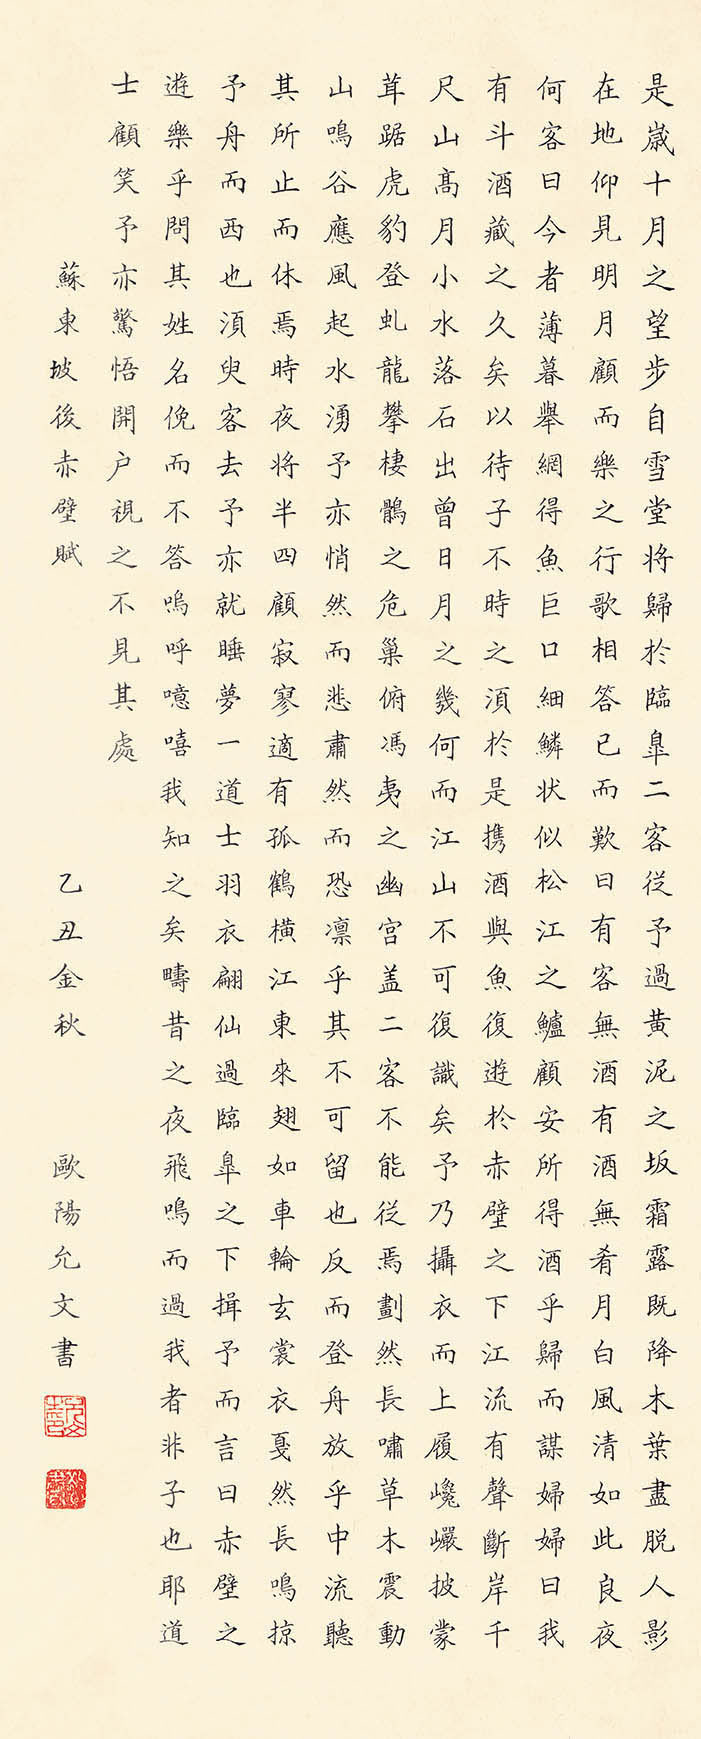 是歲十月之望步自雪堂将歸於臨皐二客從予過黄泥之坂霜露既降木葉盡脱人影
在地仰見明月顧而樂之行歌相答已而歎曰有客無酒有酒無肴月白風清如此良夜
何客曰今者薄暮舉網得魚巨口細鱗状似松江之鱸顧安所得酒乎歸而謀婦婦曰我
有斗酒藏之久矣以待子不時之湏於是携酒與魚復遊於赤壁之下江流有聲斷岸千
尺山髙月小水落石出曾日月之幾何而江山不可復識矣予乃攝衣而上履巉巖披蒙
茸踞虎豹登虬龍攀棲鶻之危巢俯馮夷之幽宫盖二客不能従焉劃然長嘯草木震動
山鳴谷應風起水湧予亦悄然而悲肅然而恐凛乎其不可留也反而登舟放乎中流聽
其所止而休焉時夜将半四顧寂寥適有孤鶴横江東來翅如車輪玄裳衣戛然長鳴掠
予舟而西也湏臾客去予亦就睡夢一道士羽衣翩仙過臨皐之下揖予而言曰赤壁之
遊樂乎問其姓名俛而不答嗚呼噫嘻我知之矣疇昔之夜飛鳴而過我者非子也耶道
士顧笑予亦驚悟開户視之不見其處
蘇東坡後赤壁賦 乙丑金秋 歐陽允文書